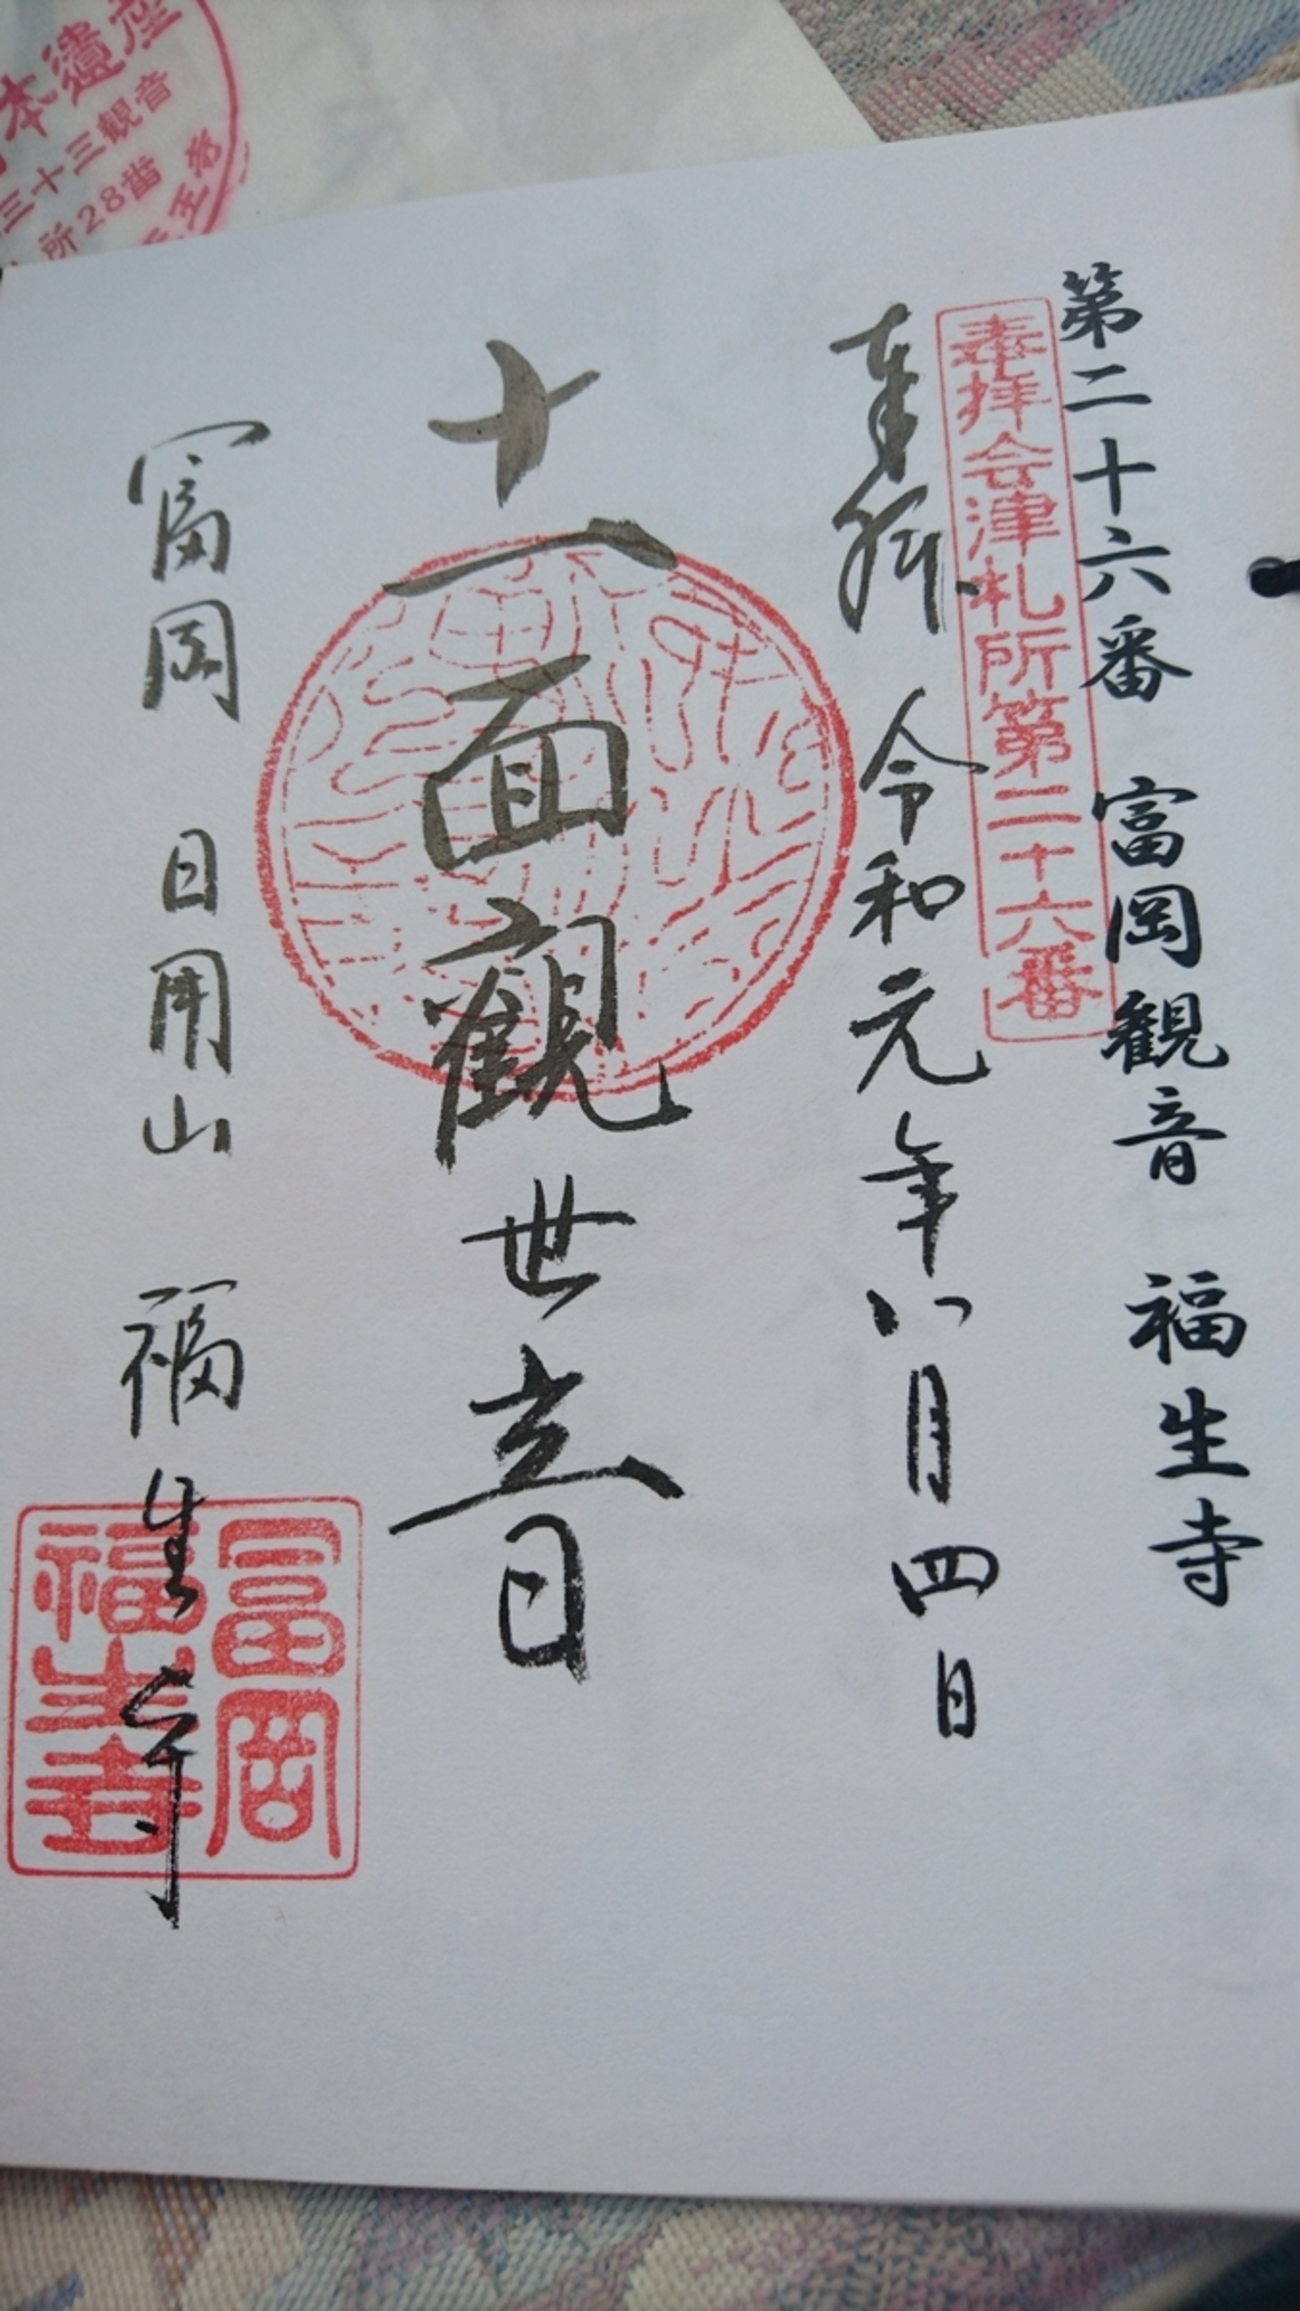 第二十六番 富岡観音 福生寺
奉拝会津札所第二十六番
奉拝 令和元年八月四日
十一面觀世音
富岡 日用山 福生寺
富岡
福生寺
本遺産
三十三観音
所28番